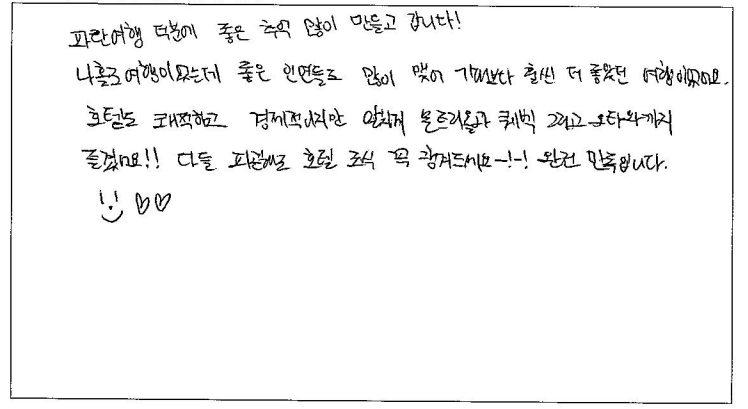 파란여행 덕분에 좋은 추억 많이 만들고 갑니다!
나홀로여행이었는데 좋은 인연들도 많이 맺어 기대보다 훨씬 더 좋았던 여행이었어요.
호텔도 쾌적하고 경제적이지만 알차게 몬트리올과 퀘백 그리고 오타와까지
즐겼어요!! 다들 피곤해도 호텔 조식 꼭 챙겨드세요~!~! 완전 만족입니다.